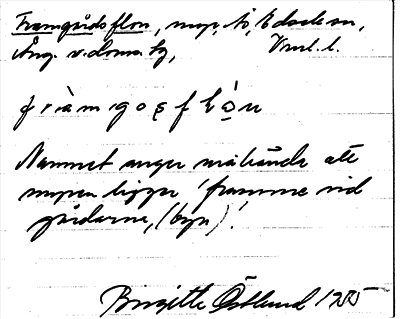 Framgårdsflon, myr, i Edsele sn,
Ång. v.doma tg, Vml. l.
fràmgoşflòn
Namnet anger måhända att
myren ligger 'framme vid
gårdarne, (byn)'.
Birgitte Östlund 1955